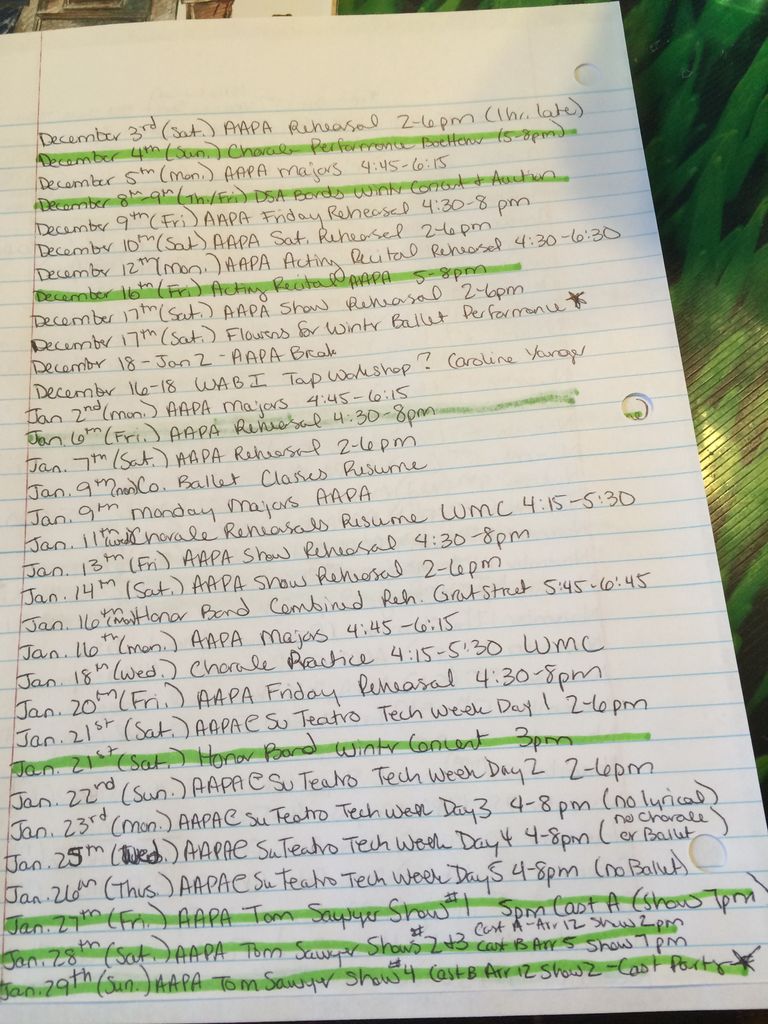 December 3rd (Sat.) AAPA Rehearsal 2-6pm (1hr. late)
December 4th (Sun.) Chorale Performance Boettcher (5-8pm)
December 5th (mon.) AAPA majors 4:45-6:15
December 8th-9th (Th/Fri) DSA Bands Wintr Concert & Auction
December 9th (Fri) AAPA Friday Rehearsal 4:30-8 pm
December 10th (Sat) AAPA Sat. Rehearsal 2-6pm
December 12th (mon.) AAPA Acting Recital Rehearsal 4:30-6:30
December 16th (Fri) Acting Recital AAPA 5-8pm
December 17th (Sat.) AAPA Show Rehearsal 2-6pm
December 17th (Sat.) Flowers for Wintr Ballet Performance *
December 18-Jan 2 - AAPA Break
December 16-18 WAB I Tap Workshop? Caroline
Jan 2nd (mon.) AAPA majors 4:45-6:15
Jan 6th (Fri.) AAPA Rehearsal 4:30-8pm
Jan. 7th (Sat.) AAPA Rehearsal 2-6pm
Jan. 9th (mon) Co. Ballet Classes Resume
Jan. 9th monday majors AAPA
Jan. 11th (wed) Chorale Rehearsals Resume WMC 4:15-5:30
Jan. 13th (Fri) AAPA Show Rehearsal 4:30-8pm
Jan. 14th (Sat.) AAPA Show Rehearsal 2-6pm
Jan. 16th (mon) Honor Band Combined Reh. Grat street 5:45-6:45
Jan. 16th (mon.) AAPA Majors 4:45-6:15
Jan. 18th (Wed.) Chorale Practice 4:15-5:30 WMC
Jan. 20th (Fri.) AAPA Friday Rehearsal 4:30-8pm
Jan. 21st (Sat.) AAPA @ Su Teatro Tech Week Day 1 2-6pm
Jan. 21st (Sat.) Honor Band Wintr Concert 3pm
Jan. 22nd (Sun.) AAPA @ Su Teatro Tech Week Day 2 2-6pm
Jan. 23rd (mon.) AAPA @ Su Teatro Tech Week Day 3 4-8 pm (no lyrical)
Jan. 25th (Wed.) AAPA @ Su Teatro Tech Week Day 4 4-8pm (no chorale or Ballet
Jan. 26th (Thus.) AAPA @ Su Teatro Tech Week Day 5 4-8pm (no Ballet)
Jan. 27th (Fri.) AAPA Tom Sawyer Show #1 5pm Cast A (Show 7pm)
Jan. 28th (Sat.) AAPA Tom Sawyer Shows #2+3 Cast A - Arr 12 Show 2pm Cast B Arr 5 Show 7pm
Jan. 29th (Sun.) AAPA Tom Sawyer Show #4 Cast B Arr 12 Show 2 - Cast Party *